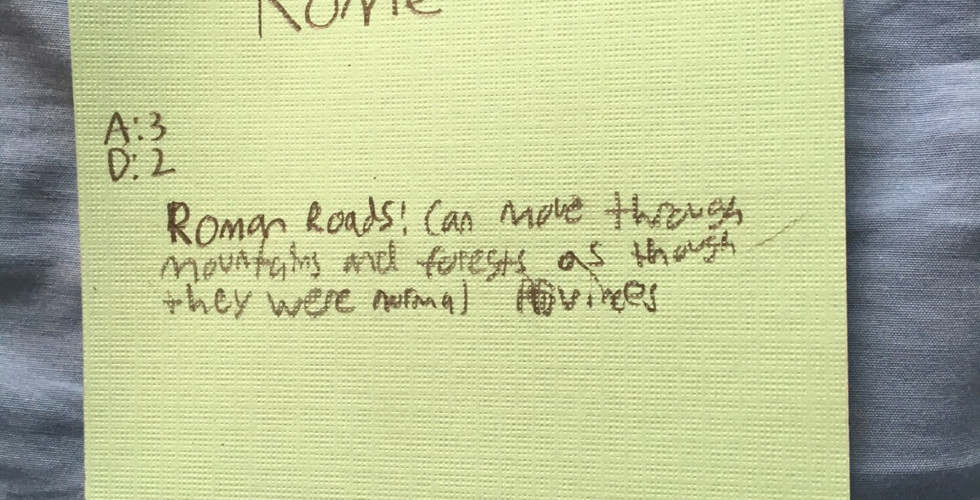 Rome
A:3
D:2
Roman Roads: Can move through
mountains and forests as though
they were normal provinces